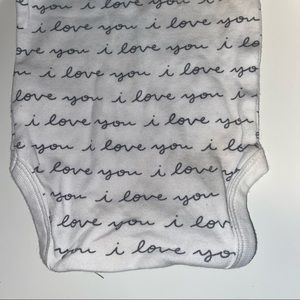 you i love you
you i love you i love
love you i love you i lo
i love you i love you
love you i love you i love
i love you i love you i
you i love you i love
i love you i love you
love you i love you
you i love you i lov
you i love yo